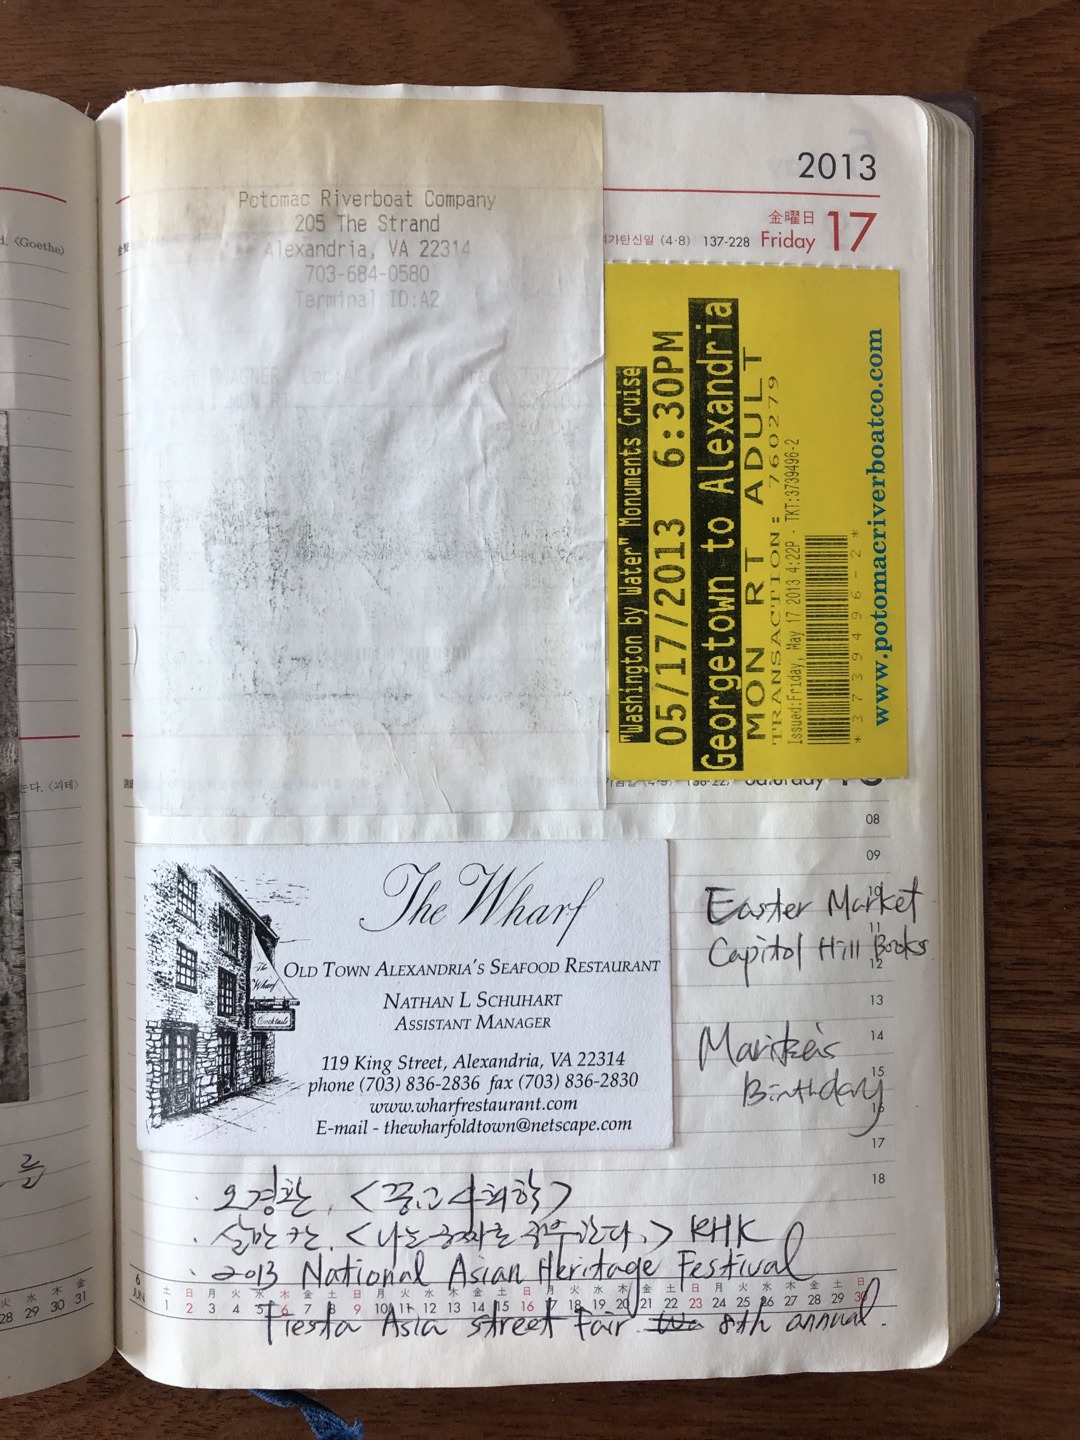 2013
<Goethe>
Potomac Riverboat Company
205 The Strand
Alexandria, VA 22314
703-684-0580
Terminal ID:A2
가탄신일 (4·8) 137-228
金曜日
Friday 17
"Washington by Water" Monuments Cruise
05/17/2013 6:30PM
Georgetown to Alexandria
MON RT ADULT
TRANSACTION: 760279
Issued:Friday, May 17 2013 4:22P - TKT:3739496-2
*3739496-2*
www.potomacriverboatco.com
Saturday
다. <괴테>
08
09
10
11
12
13
14
15
16
17
18
Easter Market
Capitol Hill Books
Birthday
The Wharf
OLD TOWN ALEXANDRIA'S SEAFOOD RESTAURANT
NATHAN L SCHUHART
ASSISTANT MANAGER
119 King Street, Alexandria, VA 22314
phone (703) 836-2836 fax (703) 836-2830
www.wharfrestaurant.com
E-mail - thewharfoldtown@netscape.com
The Wharf
Cocktails
를
· 오경환, <종교사회학>
· 살만 칸, <나는 공짜로 공부한다.> KHK
· 2013 National Asian Heritage Festival
Fiesta Asia street Fair 8th annual.
火 水 木 金
28 29 30 31
6
JUNE
土 日 月 火 水 木 金 土 日 月 火 水 木 金 土 日 月 火 水 木 金 土 日 月 火 水 木 金 土 日
1 2 3 4 5 6 7 8 9 10 11 12 13 14 15 16 17 18 19 20 21 22 23 24 25 26 27 28 29 30